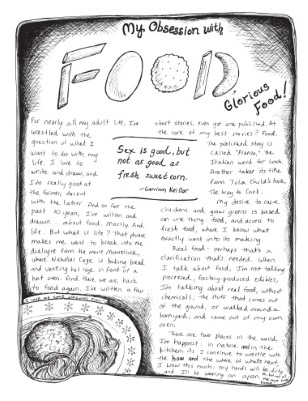 My Obsession with
FOOD
Glorious
Food!
For nearly all my adult life, I've
wrestled with the
question of what I
want to do with my
life. I love to
write and draw, and
I'm really good at
the former, decent
with the latter. And so for the
past 10 years, I've written and
drawn... about food, mostly. And
life. But what is life? That phrase
makes me want to break into
dialogue from the movie Moonstruck,
where Nicholas Cage is baking bread
and venting his rage in front of a
hot oven. And here we are, back
to food again. I've written a few
short stories, even got one published. At
the core of my best stories? Food.
The published story is
called "Pranzo," the
Italian word for lunch.
Another takes its title
from Julia Child's book,
The Way to Cook.
Sex is good, but
not as good as
fresh sweet corn.
—Garrison Keillor
My desire to raise
chickens and grow greens is based
on one thing: food, and access to
fresh food, where I know what
exactly went into its making.
Real food - perhaps that's a
clarification that's needed. When
I talk about food, I'm not talking
processed, factory-produced edibles,
I'm talking about real food, without
chemicals; the stuff that comes out
of the ground, or walked around a
barnyard, and came out of my own
oven.
There are two places in the world
I'm happiest: in nature and in the
kitchen. As I continue to wrestle with
the how and the what of what's next
I know this much: my hands will be dirty
and I'll be wearing an apron.